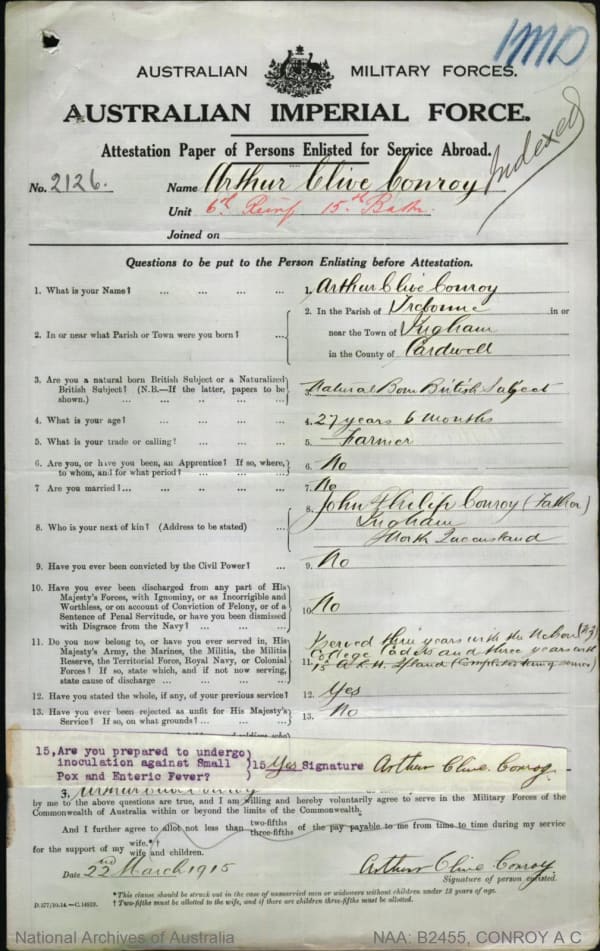 1MD
AUSTRALIAN MILITARY FORCES.
AUSTRALIAN IMPERIAL FORCE.
Attestation Paper of Persons Enlisted for Service Abroad.
Indexed
No. 2126. Name Arthur Clive Conroy
Unit 6th Reinf 15th Battn.
Joined on
Questions to be put to the Person Enlisting before Attestation.
1. What is your Name? ... ... ... ... 1. Arthur Clive Conroy
2. In or near what Parish or Town were you born? ... 2. In the Parish of Trebonne in or
near the Town of Ingham
in the County of Cardwell
3. Are you a natural born British Subject or a Naturalized
British Subject? (N.B.—If the latter, papers to be
shown.) ... ... ... ... 3. Natural Born British Subject
4. What is your age? ... ... ... ... 4. 27 years 6 months
5. What is your trade or calling? ... ... ... 5. Farmer
6. Are you, or have you been, an Apprentice? If so, where,
to whom, and for what period? ... ... ... 6. No
7 Are you married?... ... ... ... ... 7. No
8. Who is your next of kin? (Address to be stated) ... 8. John Philip Conroy (Father)
Ingham
North Queensland
9. Have you ever been convicted by the Civil Power? ... 9. No
10. Have you ever been discharged from any part of His
Majesty's Forces, with Ignominy, or as Incorrigible and
Worthless, or on account of Conviction of Felony, or of a
Sentence of Penal Servitude, or have you been dismissed
with Disgrace from the Navy? ... ... ... 10. No
11. Do you now belong to, or have you ever served in, His
Majesty's Army, the Marines, the Militia, the Militia
Reserve, the Territorial Force, Royal Navy, or Colonial
Forces? If so, state which, and if not now serving,
state cause of discharge ... ... ... 11. Served three years with the
College Cadets and three years with
15 A.L.H. (Completed training service)
12. Have you stated the whole, if any, of your previous service? 12. Yes
13. Have you ever been rejected as unfit for His Majesty's
Service? If so, on what grounds? ... ... ... 13. No
15, Are you prepared to undergo
inoculation against Small
Pox and Enteric Fever? 15 Yes Signature Arthur Clive Conroy
3. Arthur Clive Conroy
by me to the above questions are true, and I am willing and hereby voluntarily agree to serve in the Military Forces of the
Commonwealth of Australia within or beyond the limits of the Commonwealth.
And I further agree to allot not less than two-fifths three-fifths of the pay payable to me from time to time during my service
for the support of my wife.*† wife and children.
Date 22nd March 1915 Arthur Clive Conroy
Signature of person enlisted.
*This clause should be struck out in the case of unmarried men or widowers without children under 18 years of age.
D.577/10.14.—C.14939. †Two-fifths must be allotted to the wife, and if there are children three-fifths must be allotted.
National Archives of Australia NAA: B2455, CONROY A C